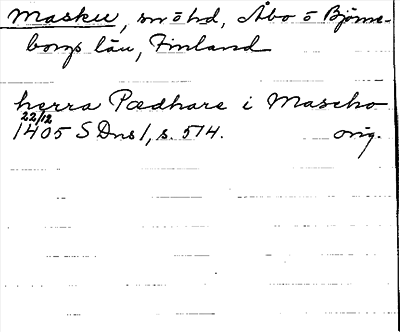 Masku, sn o hd, Åbo o Björne-
borgs län, Finland
herra Pædhare i Mascho
22/12
1405 SDns 1, s. 514. orig.